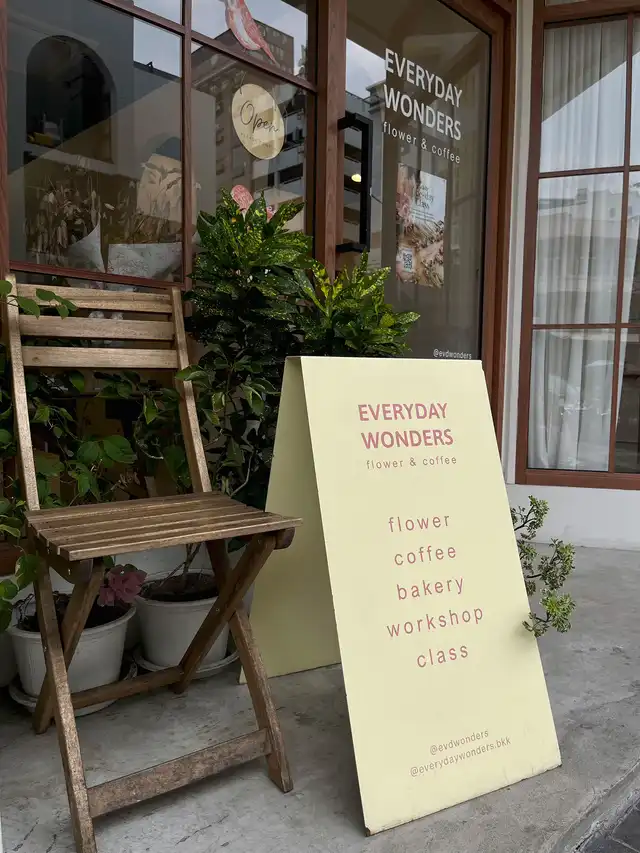 Open
EVERYDAY
WONDERS
flower & coffee
@evdwonders
EVERYDAY
WONDERS
flower & coffee
flower
coffee
bakery
workshop
class
@evdwonders
@everydaywonders.bkk